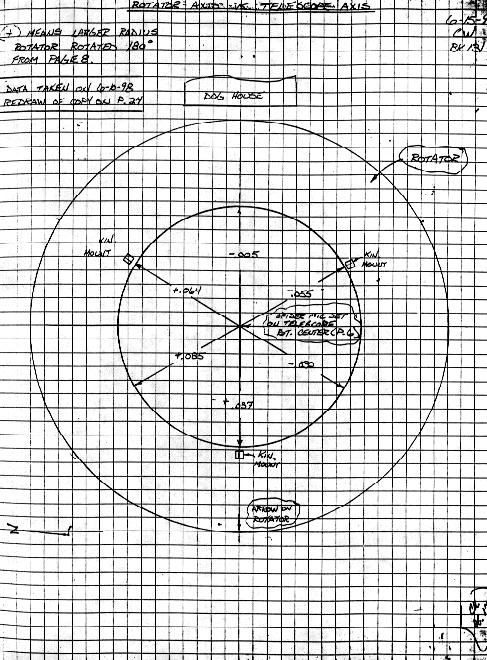 ROTATOR AXIS TELESCOPE AXIS
6-15-9
(+) MEANS LARGER RADIUS
ROTATOR ROTATED 180°
FROM PAGE 8.
DATA TAKEN ON 6-10-98
REDRAW OF COPY ON P. 24
DOG HOUSE
ROTATOR
KIN.
MOUNT
KIN.
MOUNT
-.005
+.064
.055
SPIDER MIC SET
ON TELESCOPE
CENTER (P.6)
+.085
+ .037
KIN.
MOUNT
ARROW ON
ROTATOR
N